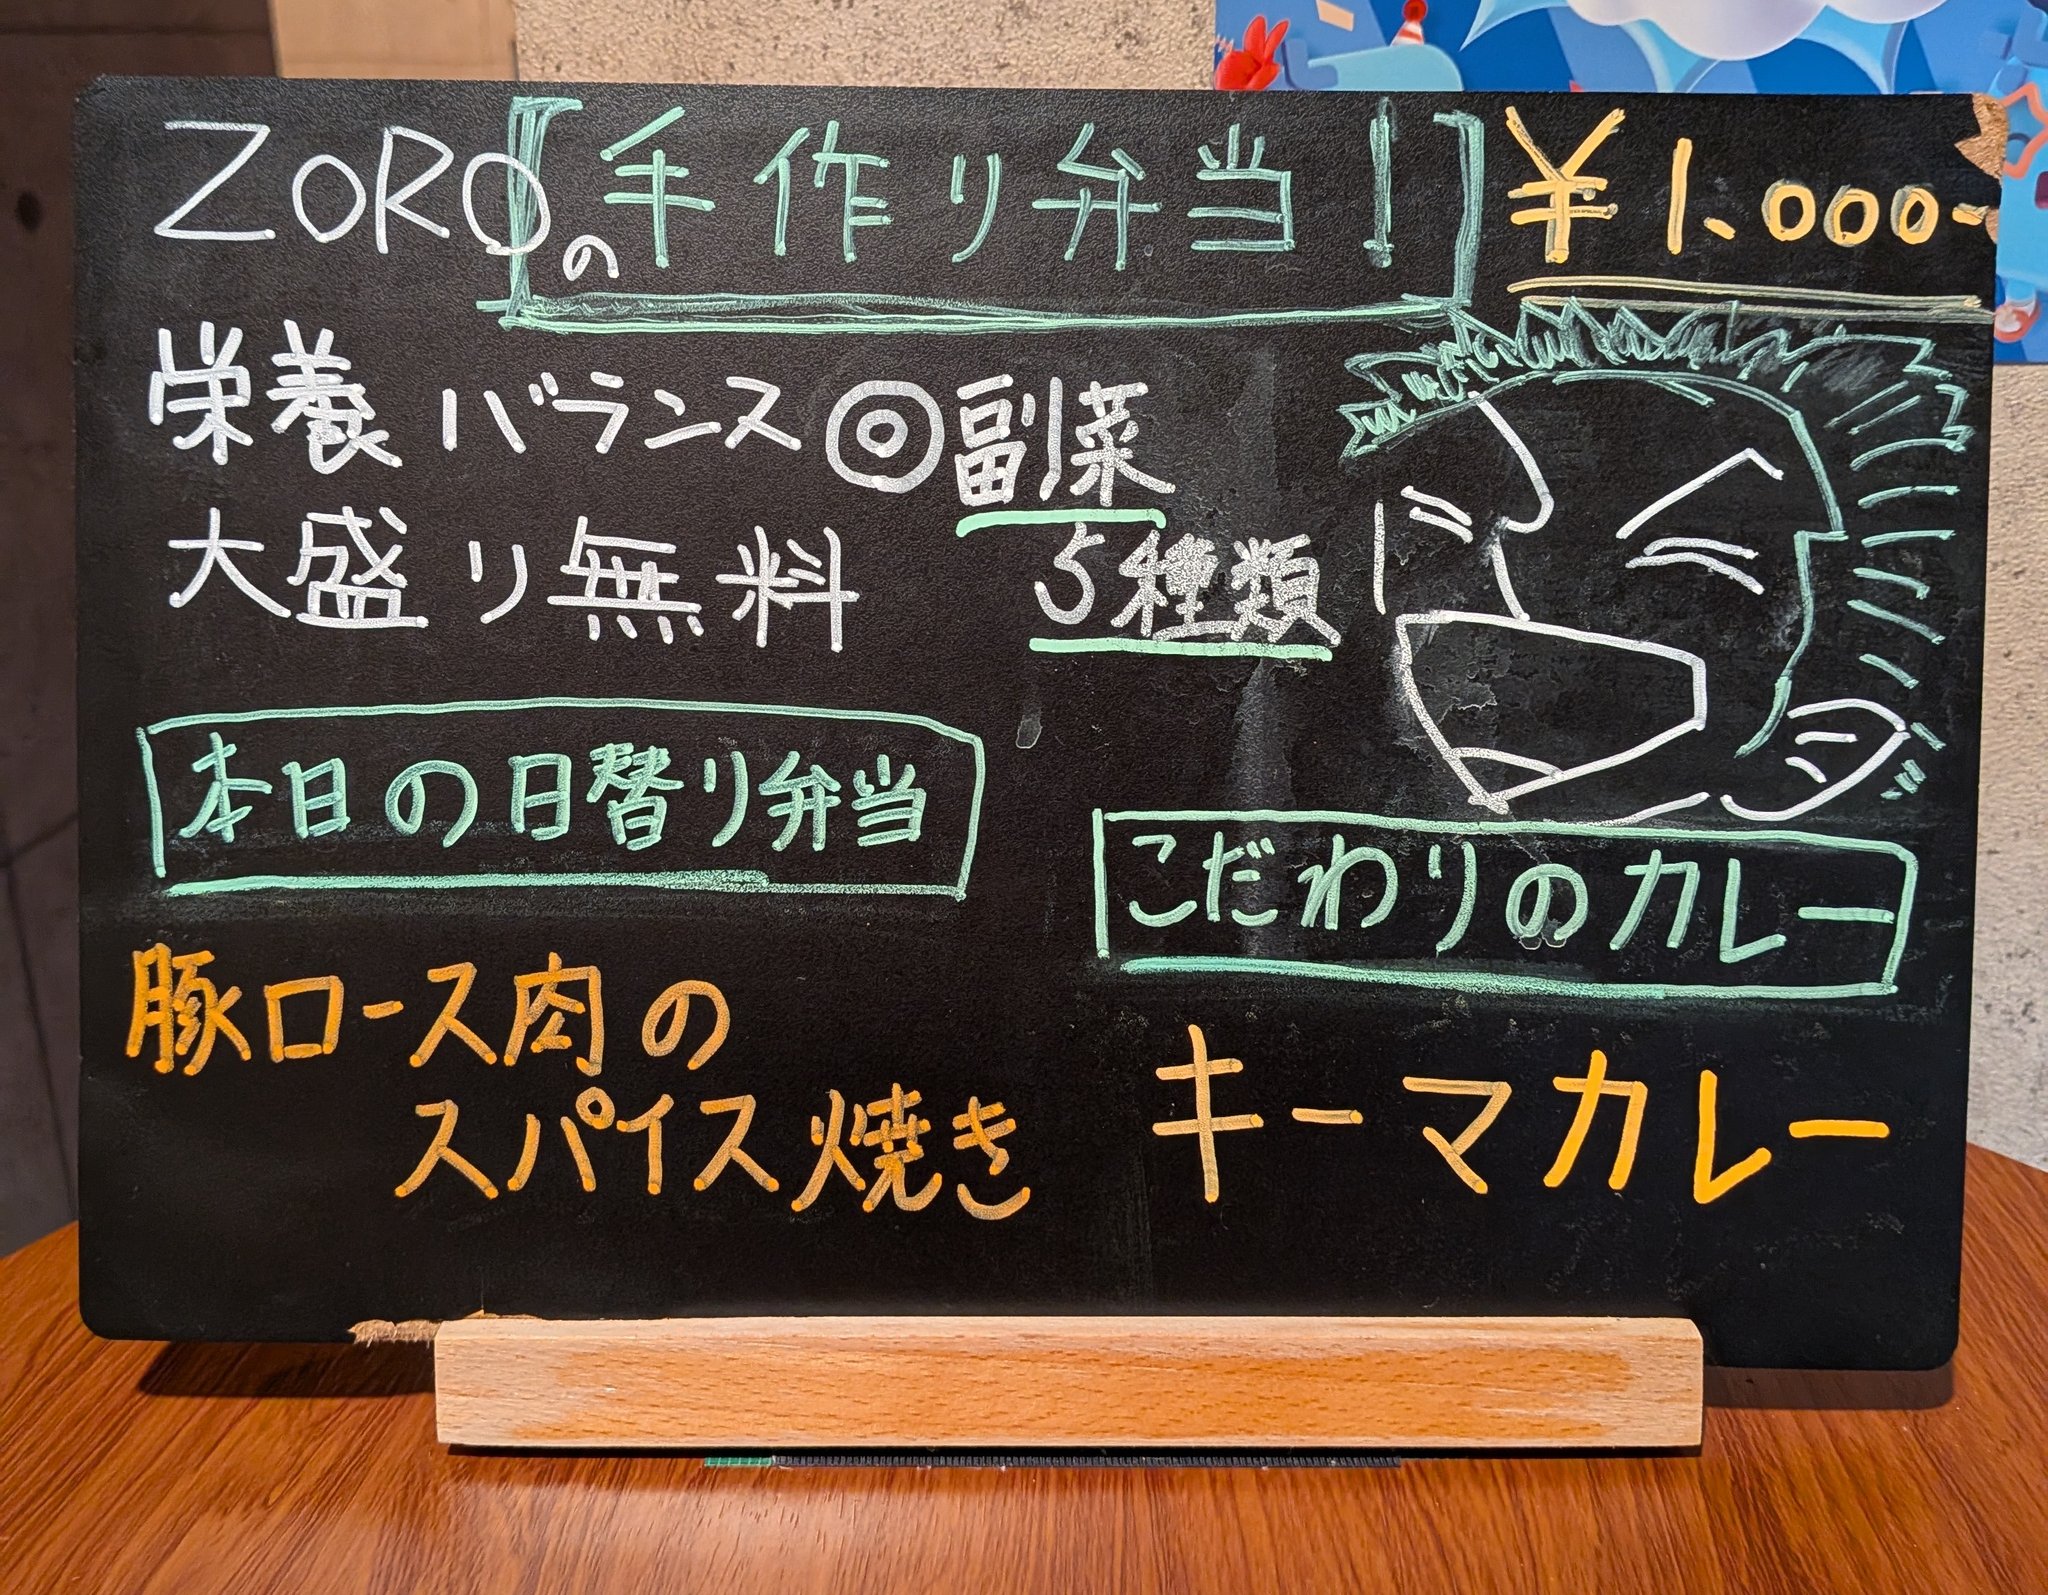 ZOROの手作り弁当! ¥1.000-
栄養バランス◎副菜
大盛り無料 5種類
本日の日替り弁当
豚ロース肉の
スパイス焼き
こだわりのカレー
キーマカレー